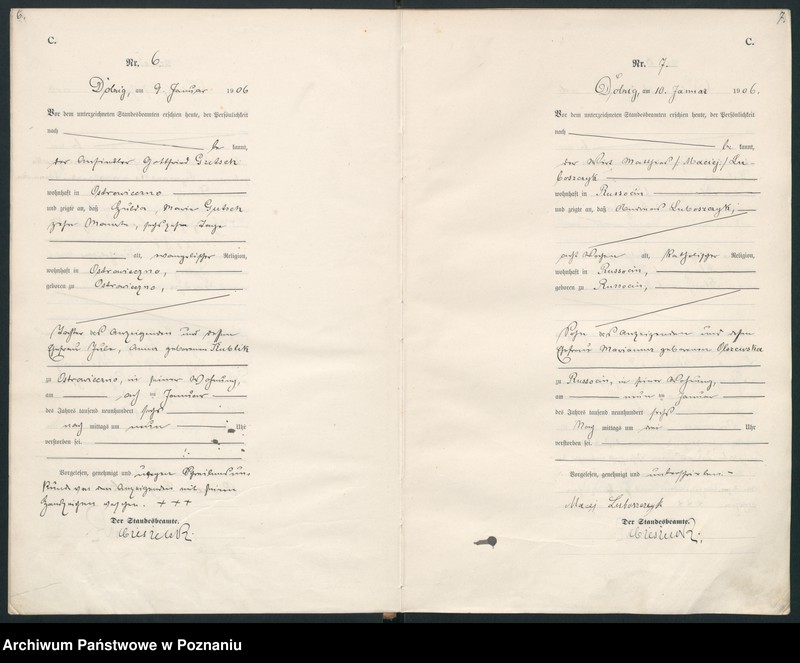 6.
C.
Nr. 6
Dolzig, am 9 Januar 1906
Vor dem unterzeichneten Standesbeamten erschien heute, der Persönlichkeit
nach
be kannt,
der Ansiedler Gottfried Gutsch
wohnhaft in Ostrowieczno
und zeigte an, daß Hulda, Marie Gutsch
zehn Monate, sechszehn Tage
alt, evangelischer Religion,
wohnhaft in Ostrowieczno,
geboren zu Ostrowieczno,
Tochter des Anzeigenden und dessen
Ehefrau Jule, Anna geborenen Kublik
zu Ostrowieczno, in seiner Wohnung,
am acht ten Januar
des Jahres tausend neunhundert sechs
nach mittags um neun Uhr
verstorben sei.
Vorgelesen, genehmigt und wegen Schreibensun-
kunde von dem Anzeigenden mit seinem
Handzeichen versehen. + + +
Der Standesbeamte.
7.
C.
Nr. 7.
Dolzig, am 10. Januar 1906.
Vor dem unterzeichneten Standesbeamten erschien heute, der Persönlichkeit
nach
be kannt,
der Wirt Matthias /Maciej/ Lu-
boszczyk
wohnhaft in Russocin
und zeigte an, daß Luboszczyk,
acht Wochen alt, katholischer Religion,
wohnhaft in Russocin,
geboren zu Russocin,
Sohn des Anzeigenden und dessen
Ehefrau Marianna geborenen Olszewska
zu Russocin, in seiner Wohnung,
am neun ten Januar
des Jahres tausend neunhundert sechs
Nach mittags um Uhr
verstorben sei.
Vorgelesen, genehmigt und unterschrieben.
Maciej Luboszczyk
Der Standesbeamte.
Archiwum Państwowe w Poznaniu